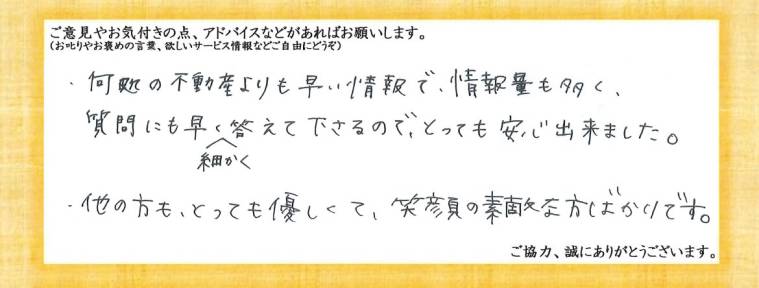 ご意見やお気付きの点、アドバイスなどがあればお願いします。
(お叱りやお褒めの言葉、欲しいサービス情報などご自由にどうぞ)
・何処の不動産よりも早い情報で、情報量も多く、
質問にも早く答えて下さるので、とっても安心出来ました。
細かく
・他の方も、とっても優しくて、笑顔の素敵な方ばかりです。
ご協力、誠にありがとうございます。